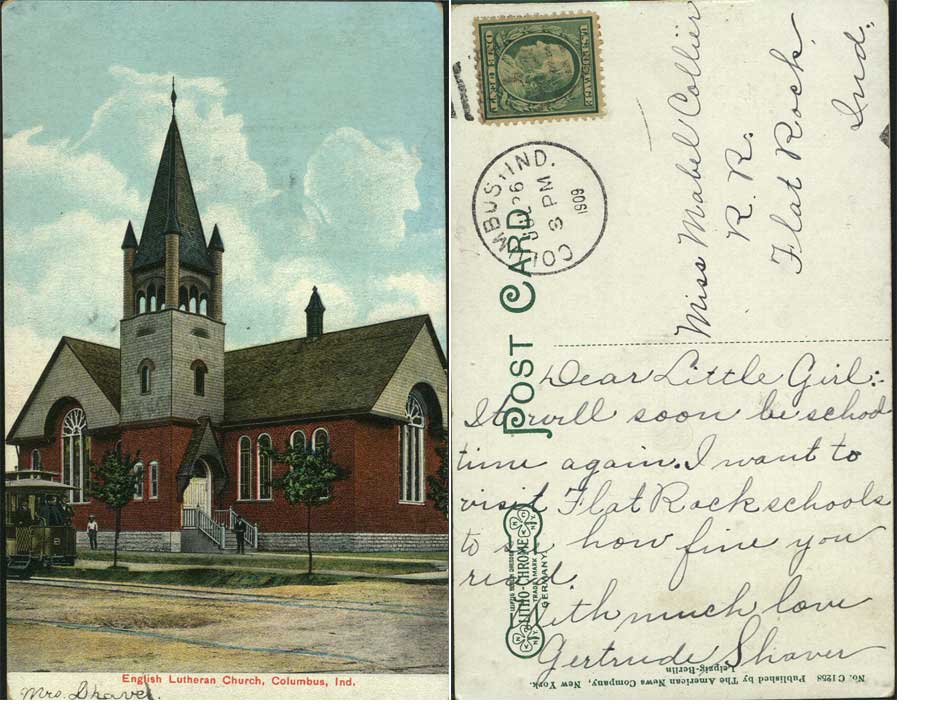 English Lutheran Church, Columbus, Ind.
Mrs. Shaver.
U.S. POSTAGE
ONE CENT
COLUMBUS, IND.
JUL 26
3 PM
1909
POST CARD
Miss Mabel Collier
R. R.
Flat Rock,
Ind.,
Dear Little Girl:-
It will soon be school
time again. I want to
visit Flat Rock schools
to see how fine you
read.
With much love
Gertrude Shaver
LITHO-CHROME
TRADE MARK
GERMANY
No. C1258 Published by The American News Company, New York.
Leipzig-Berlin